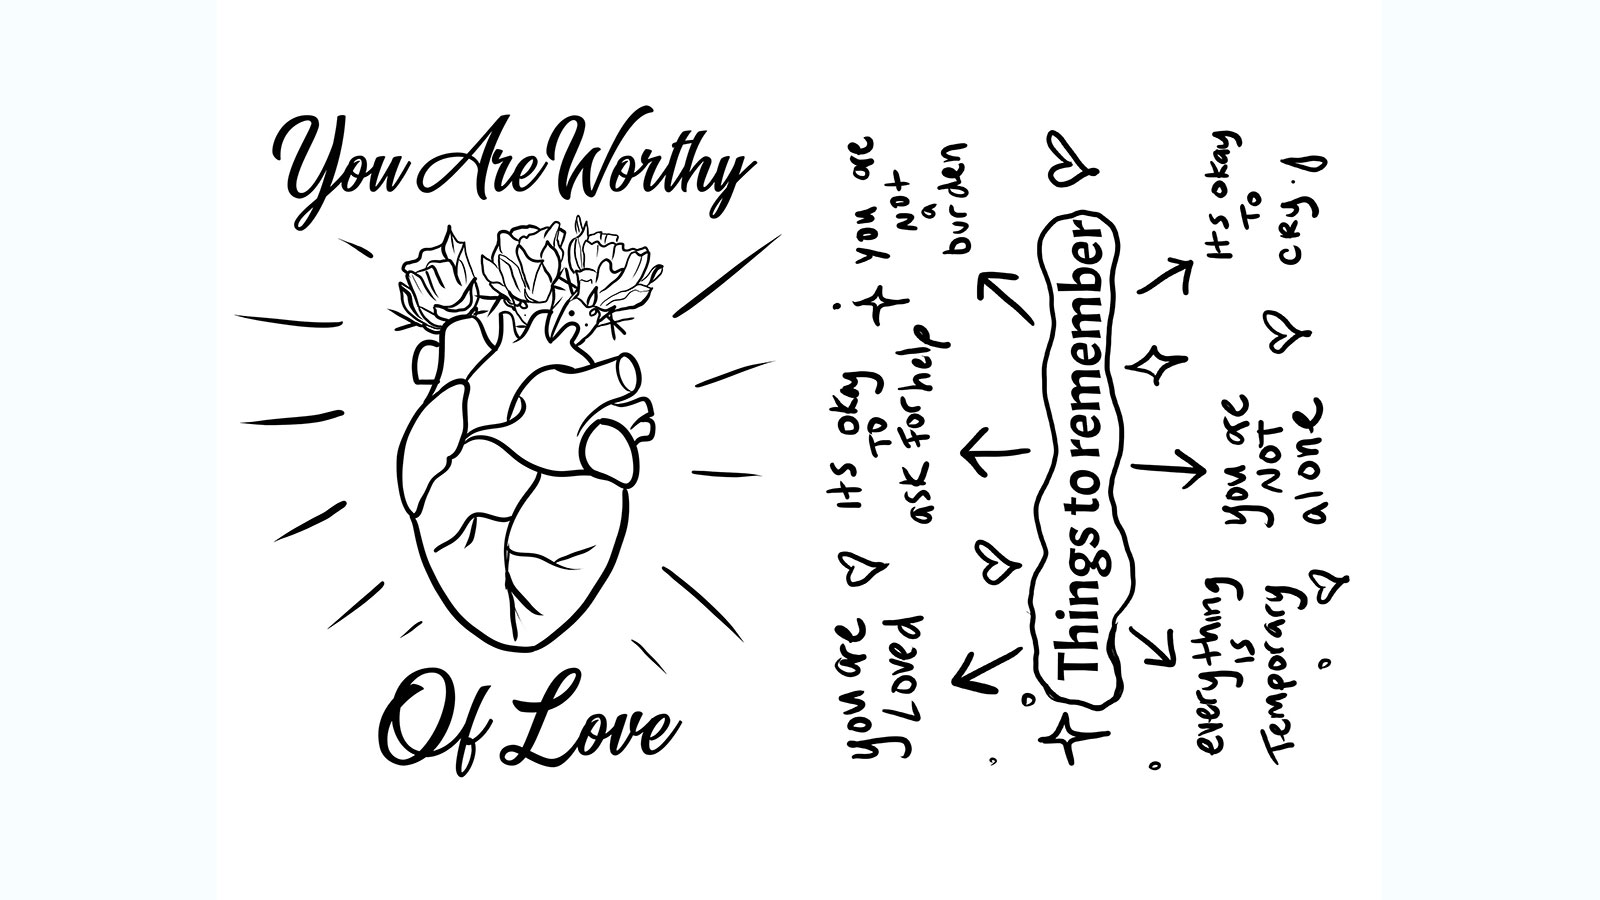 You Are Worthy
Of Love
you are
Loved
Its okay
To
ask for help
you are
Not
a
burden
Things to remember
everything
is
Temporary
you are
NOT
alone
Its okay
To
cry.